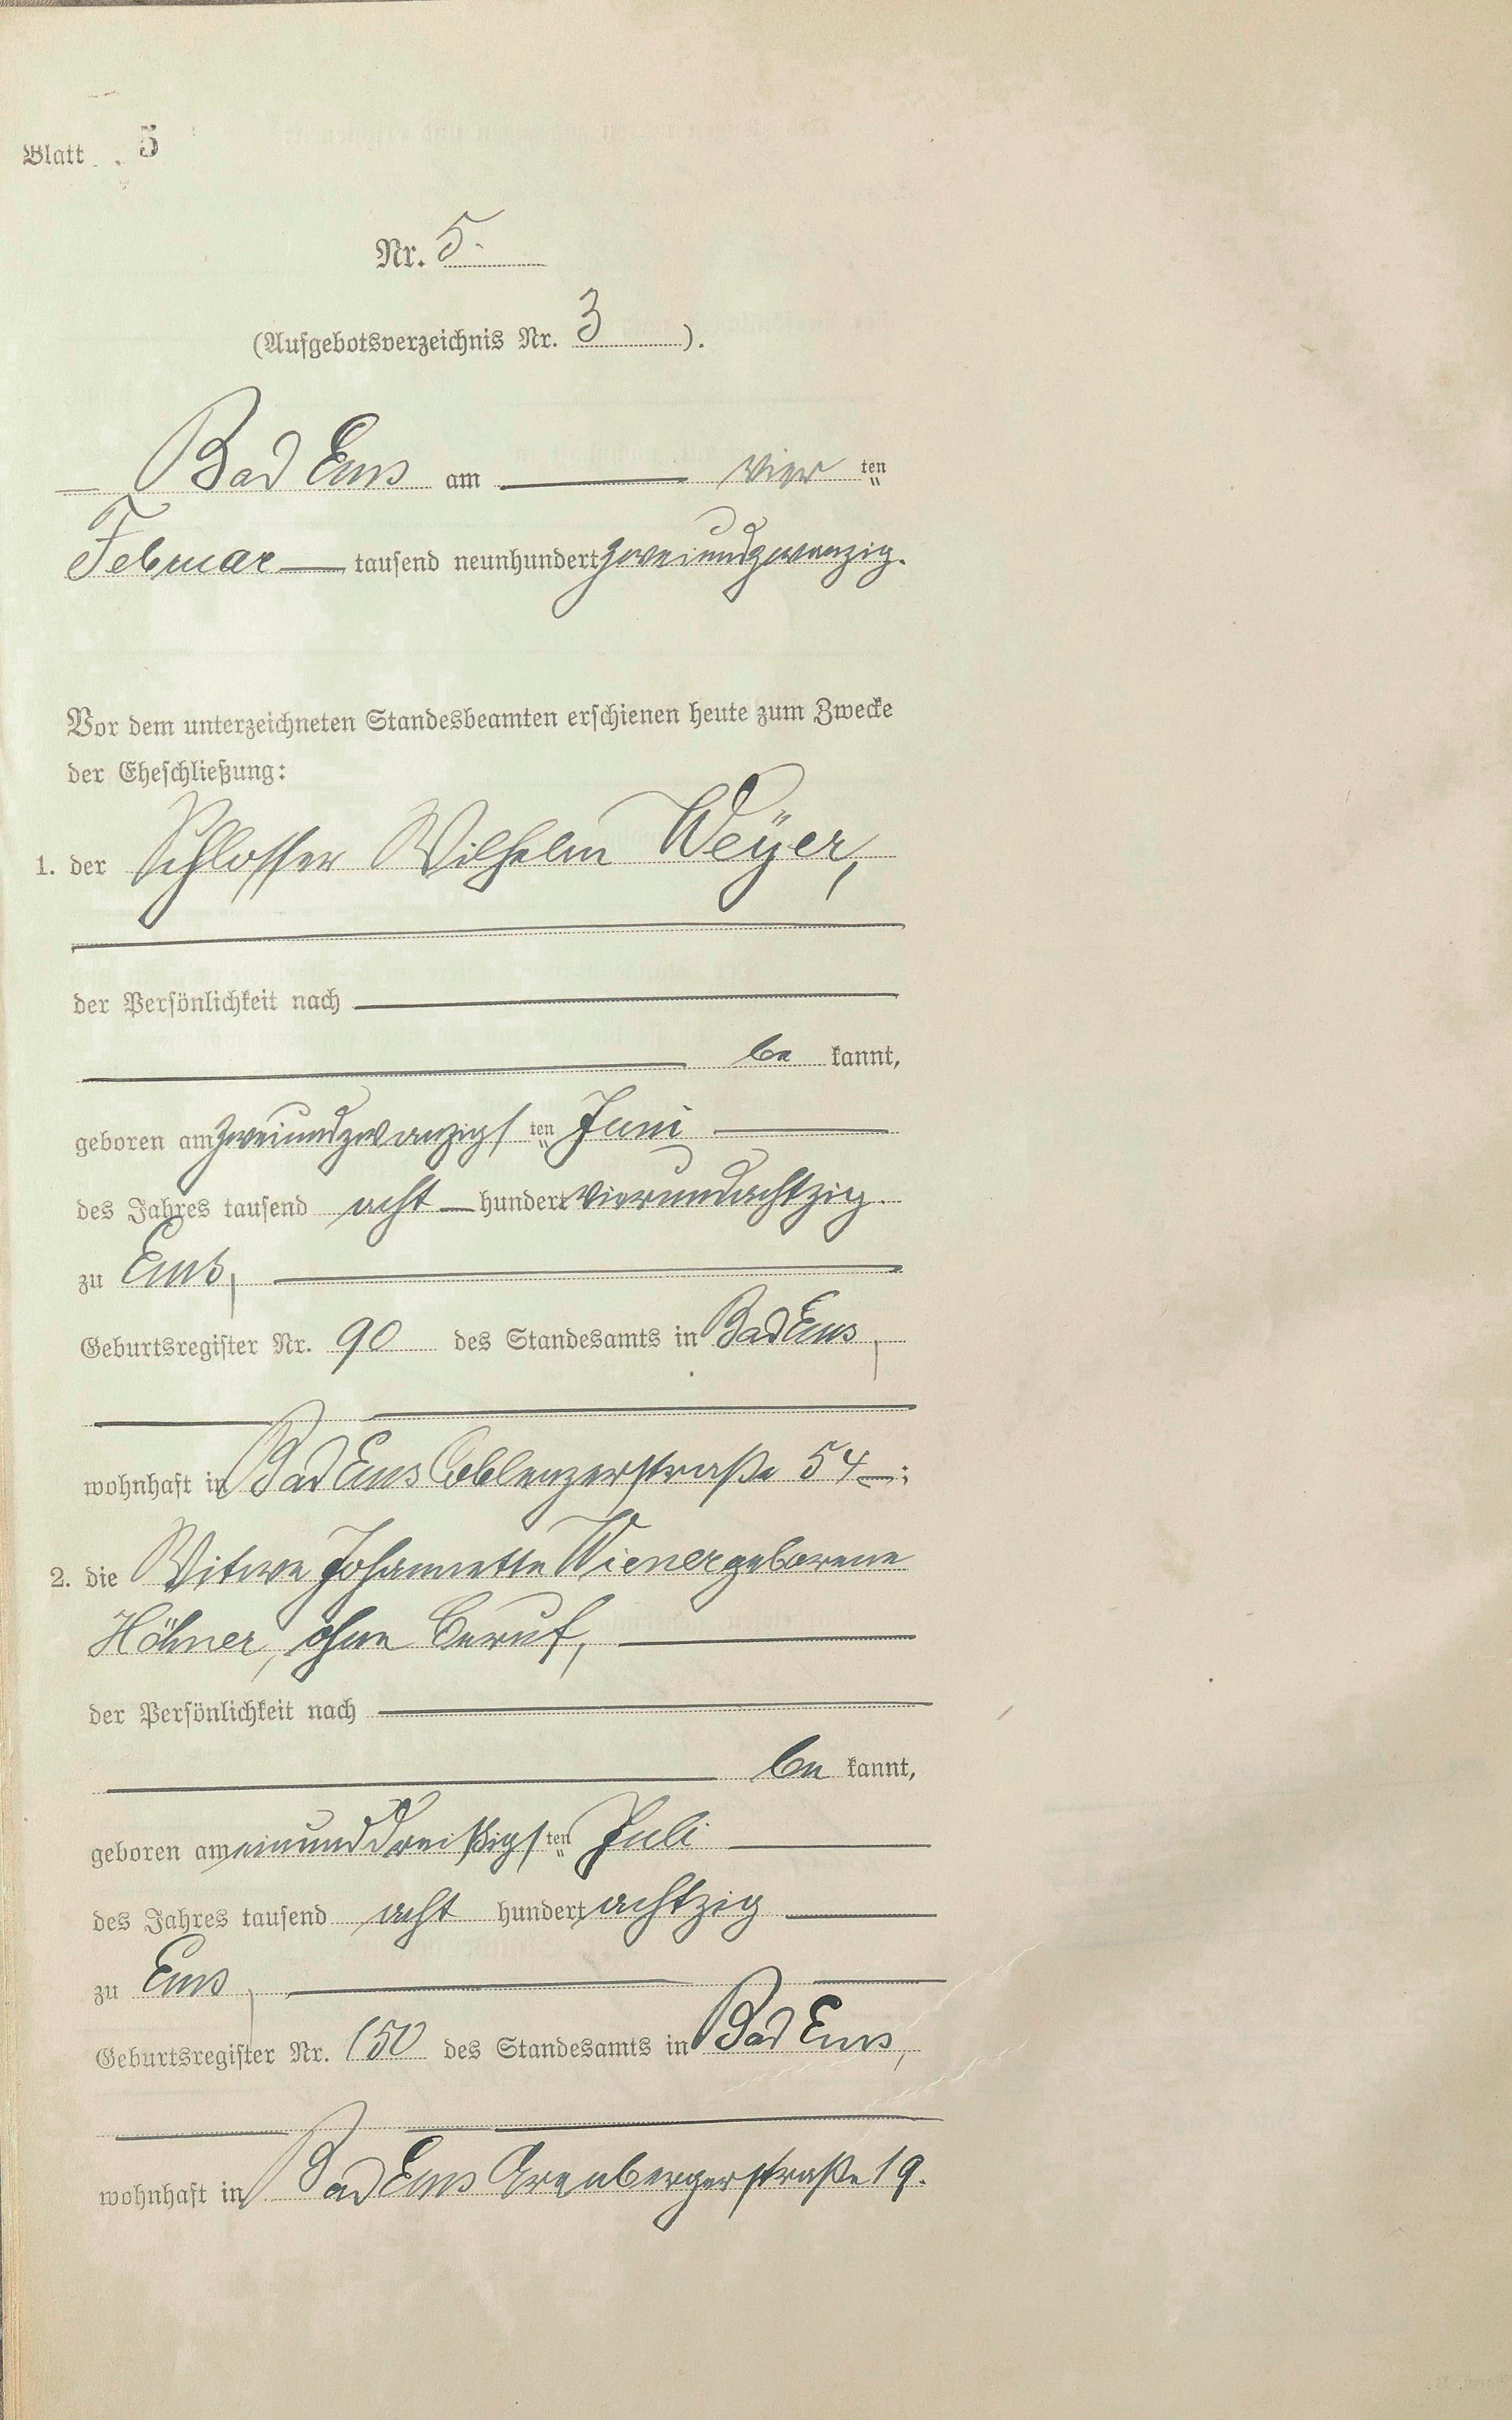 Blatt 5
Nr. 5.
(Aufgebotsverzeichnis Nr. 3 ).
Bad Ems am vier ten
Februar tausend neunhundert zweiundzwanzig.
Vor dem unterzeichneten Standesbeamten erschienen heute zum Zwecke
der Eheschließung:
1. der Schlosser Wilhelm Weÿer,
der Persönlichkeit nach
be kannt,
geboren am zweiundzwanzigs ten Juni
des Jahres tausend acht hundert vierundachtzig
zu Ems,
Geburtsregister Nr. 90 des Standesamts in Bad Ems,
wohnhaft in Bad Ems Coblenzerstraße 54 ;
2. die Witwe Johannette Wiener geborene
Höhner, ohne Beruf,
der Persönlichkeit nach
be kannt,
geboren am einunddreißigs ten Juli
des Jahres tausend acht hundert achtzig
zu Ems,
Geburtsregister Nr. 150 des Standesamts in Bad Ems,
wohnhaft in Bad Ems Arenbergerstraße 19.